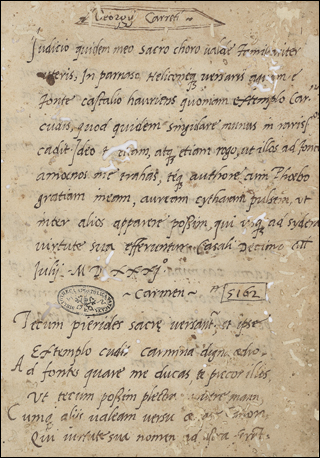 Georgij Carreti
Judicio quidem meo sacro choro valde familiariter
uteris, In parnaso Heliconeq; versaris aquam e
fonte castalio hauriens quoniam extemplo Car
cudis, quod quidem singulare munus in raris
cadit Ideo te etiam, atq; etiam rogo, ut illos ad fontes
amoenos me trahas, teq; auctore cum Phoebo
gratiam ineam, auream cytharam pulsem, ut
inter alios apparere possim, qui usq; ad sydera
virtute sua efferuntur. Casali Decimo
Julij. M D XXXI°
Carmen
5162
Tecum pierides sacre versant, et ipse
Extemplo cudis carmina digna
Ad fontes quare me ducas, te precor illos
Ut tecum possim plectra manu
Cumq; alijs valeam versu
Qui virtute sua nomen ad astra